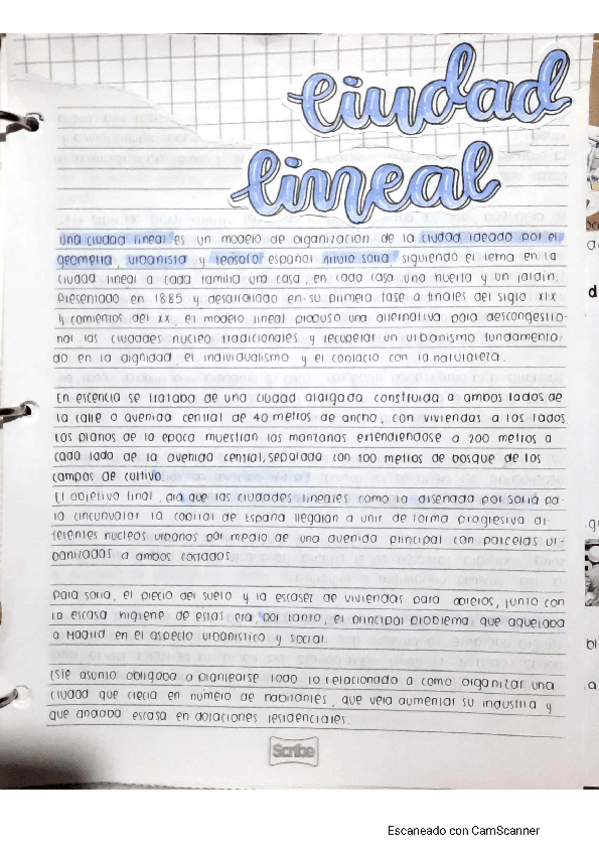 Ciudad
lineal
una ciudad lineal es un modelo de organización de la ciudad ideado por el
geometra, urbanista y teósofo español Arturo soria siguiendo el lema en la
ciudad lineal a cada familia una casa, en cada casa una huerta y un jardin.
Presentado en 1885 y desarrollado en su primera fase a finales del siglo XIX
y comientos del XX, el modelo lineal propuso una alternativa para descongestio-
nar las ciudades nucleo tradicionales y recuperar un urbanismo fundamenta-
do en la dignidad, el individualismo y el contacto con la naturaleza.
En escencia se trataba de una ciudad alargada construida a ambos lados de
la calle o avenida central de 40 metros de ancho, con viviendas a los lados.
Los planos de la epoca muestran las manzanas extendiendose a 200 metros a
cada lado de la avenida central, separada con 100 metros de bosque de los
campos de cultivo.
El objetivo final, era que las ciudades lineales como la diseñada por soria pa-
ra circunvalar la capital de España llegaran a unir de forma progresiva di-
ferentes nucleos urbanos por medio de una avenida principal con parcelas ur-
banizadas a ambos costados.
para soria, el precio del suelo y la escasez de viviendas para obreros, junto con
la escasa higiene de estas era, por tanto, el principal problema que aquejaba
a Madrid en el aspecto urbanistico y social.
Este asunto obligaba a plantearse todo lo relacionado a como organizar una
ciudad que crecia en número de habitantes, que veia aumentar su industria y
que andaba escasa en dotaciones residenciales.
Scribe
Escaneado con CamScanner